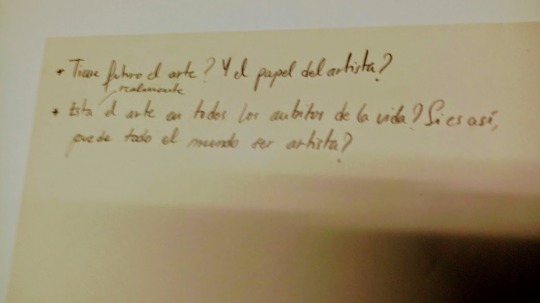 • Tiene futuro el arte? Y el papel del artista?
realmente
• Está el arte en todos los ambitos de la vida? Si es así,
puede todo el mundo ser artista?